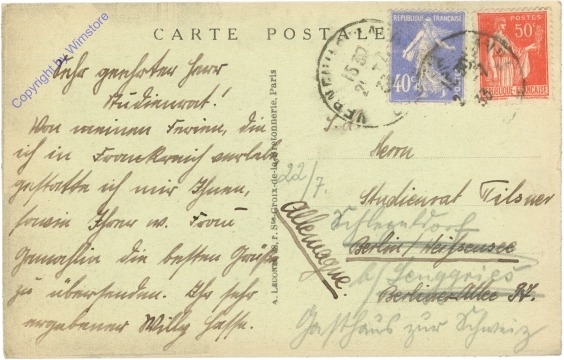 CARTE POSTALE
Sehr geehrter Herr
Studienrat!
Von meinen Ferien, die
ich in Frankreich verleb
gestatte ich mir Ihnen,
sowie Ihrer w. Frau
Gemahlin die besten Grüße
zu übersenden. Ihr sehr
ergebener Willy Hasse.
A. LECONTE, 38, R. Ste-Croix-de-la-Bretonnerie, Paris
REPUBLIQUE FRANÇAISE
40c
POSTES
50c
REPUBLIQUE FRANÇAISE
22/7.
Allemagne.
Herrn
Studienrat Tilsner
Berlin/Weißensee
b/Lenggries
Berliner Allee
Gasthaus zur Schweiz
Copyright PK Wimstore